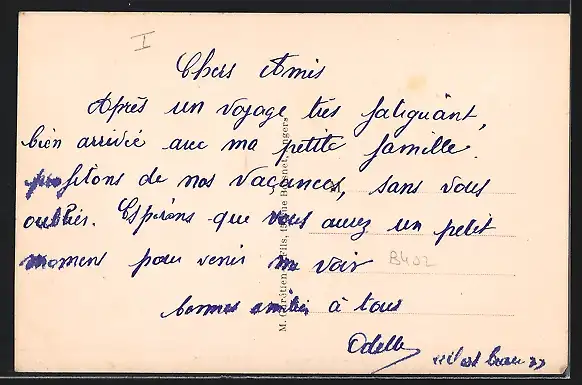 I
Chers Amis
Après un voyage très fatiguant,
bien arrivée avec ma petite famille.
profitons de nos vacances, sans vous
oublier. Espérons que vous aurez un petit
moment pour venir me voir
B402
bonnes amitiés à tous
Odette
M. Chrétien & Fils, Angers